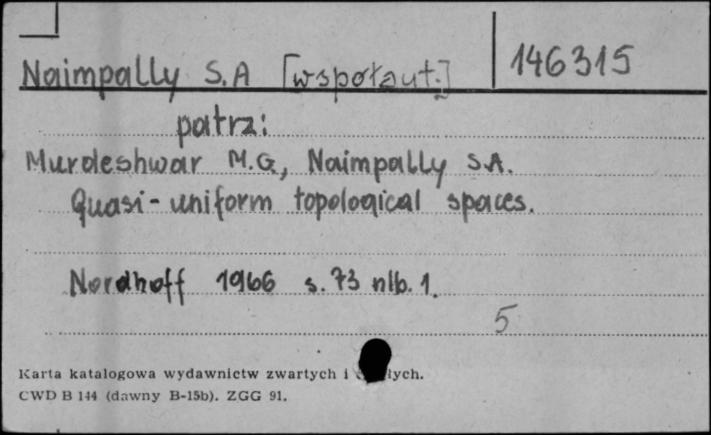 Naimpally S.A [współaut.] 146315
patrz:
Murdeshwar M.G, Naimpally S.A.
Quasi-uniform topological spaces.
Nordhoff 1966 s. 73 nlb. 1.
5
Karta katalogowa wydawnictw zwartych i
CWD B 144 (dawny B-15b). ZGG 91.